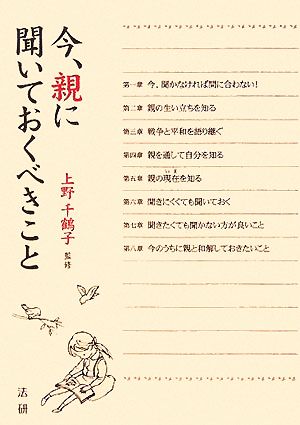 今、親に
聞いておくべきこと
上野千鶴子 監修
第一章 今、聞かなければ間に合わない!
第二章 親の生い立ちを知る
第三章 戦争と平和を語り継ぐ
第四章 親を通して自分を知る
第五章 親の現在を知る
第六章 聞きにくくても聞いておく
第七章 聞きたくても聞かない方が良いこと
第八章 今のうちに親と和解しておきたいこと
法研